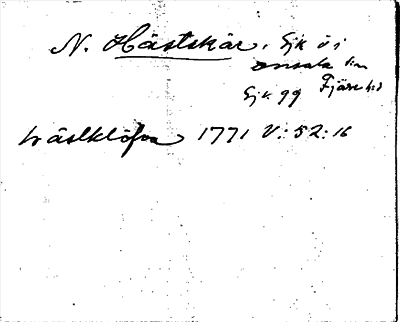 N. Hästskär, Sjk ö i
Onsala sn
Sjk 99 Fjäre hd
Wästklöfva 1771 V:52:16